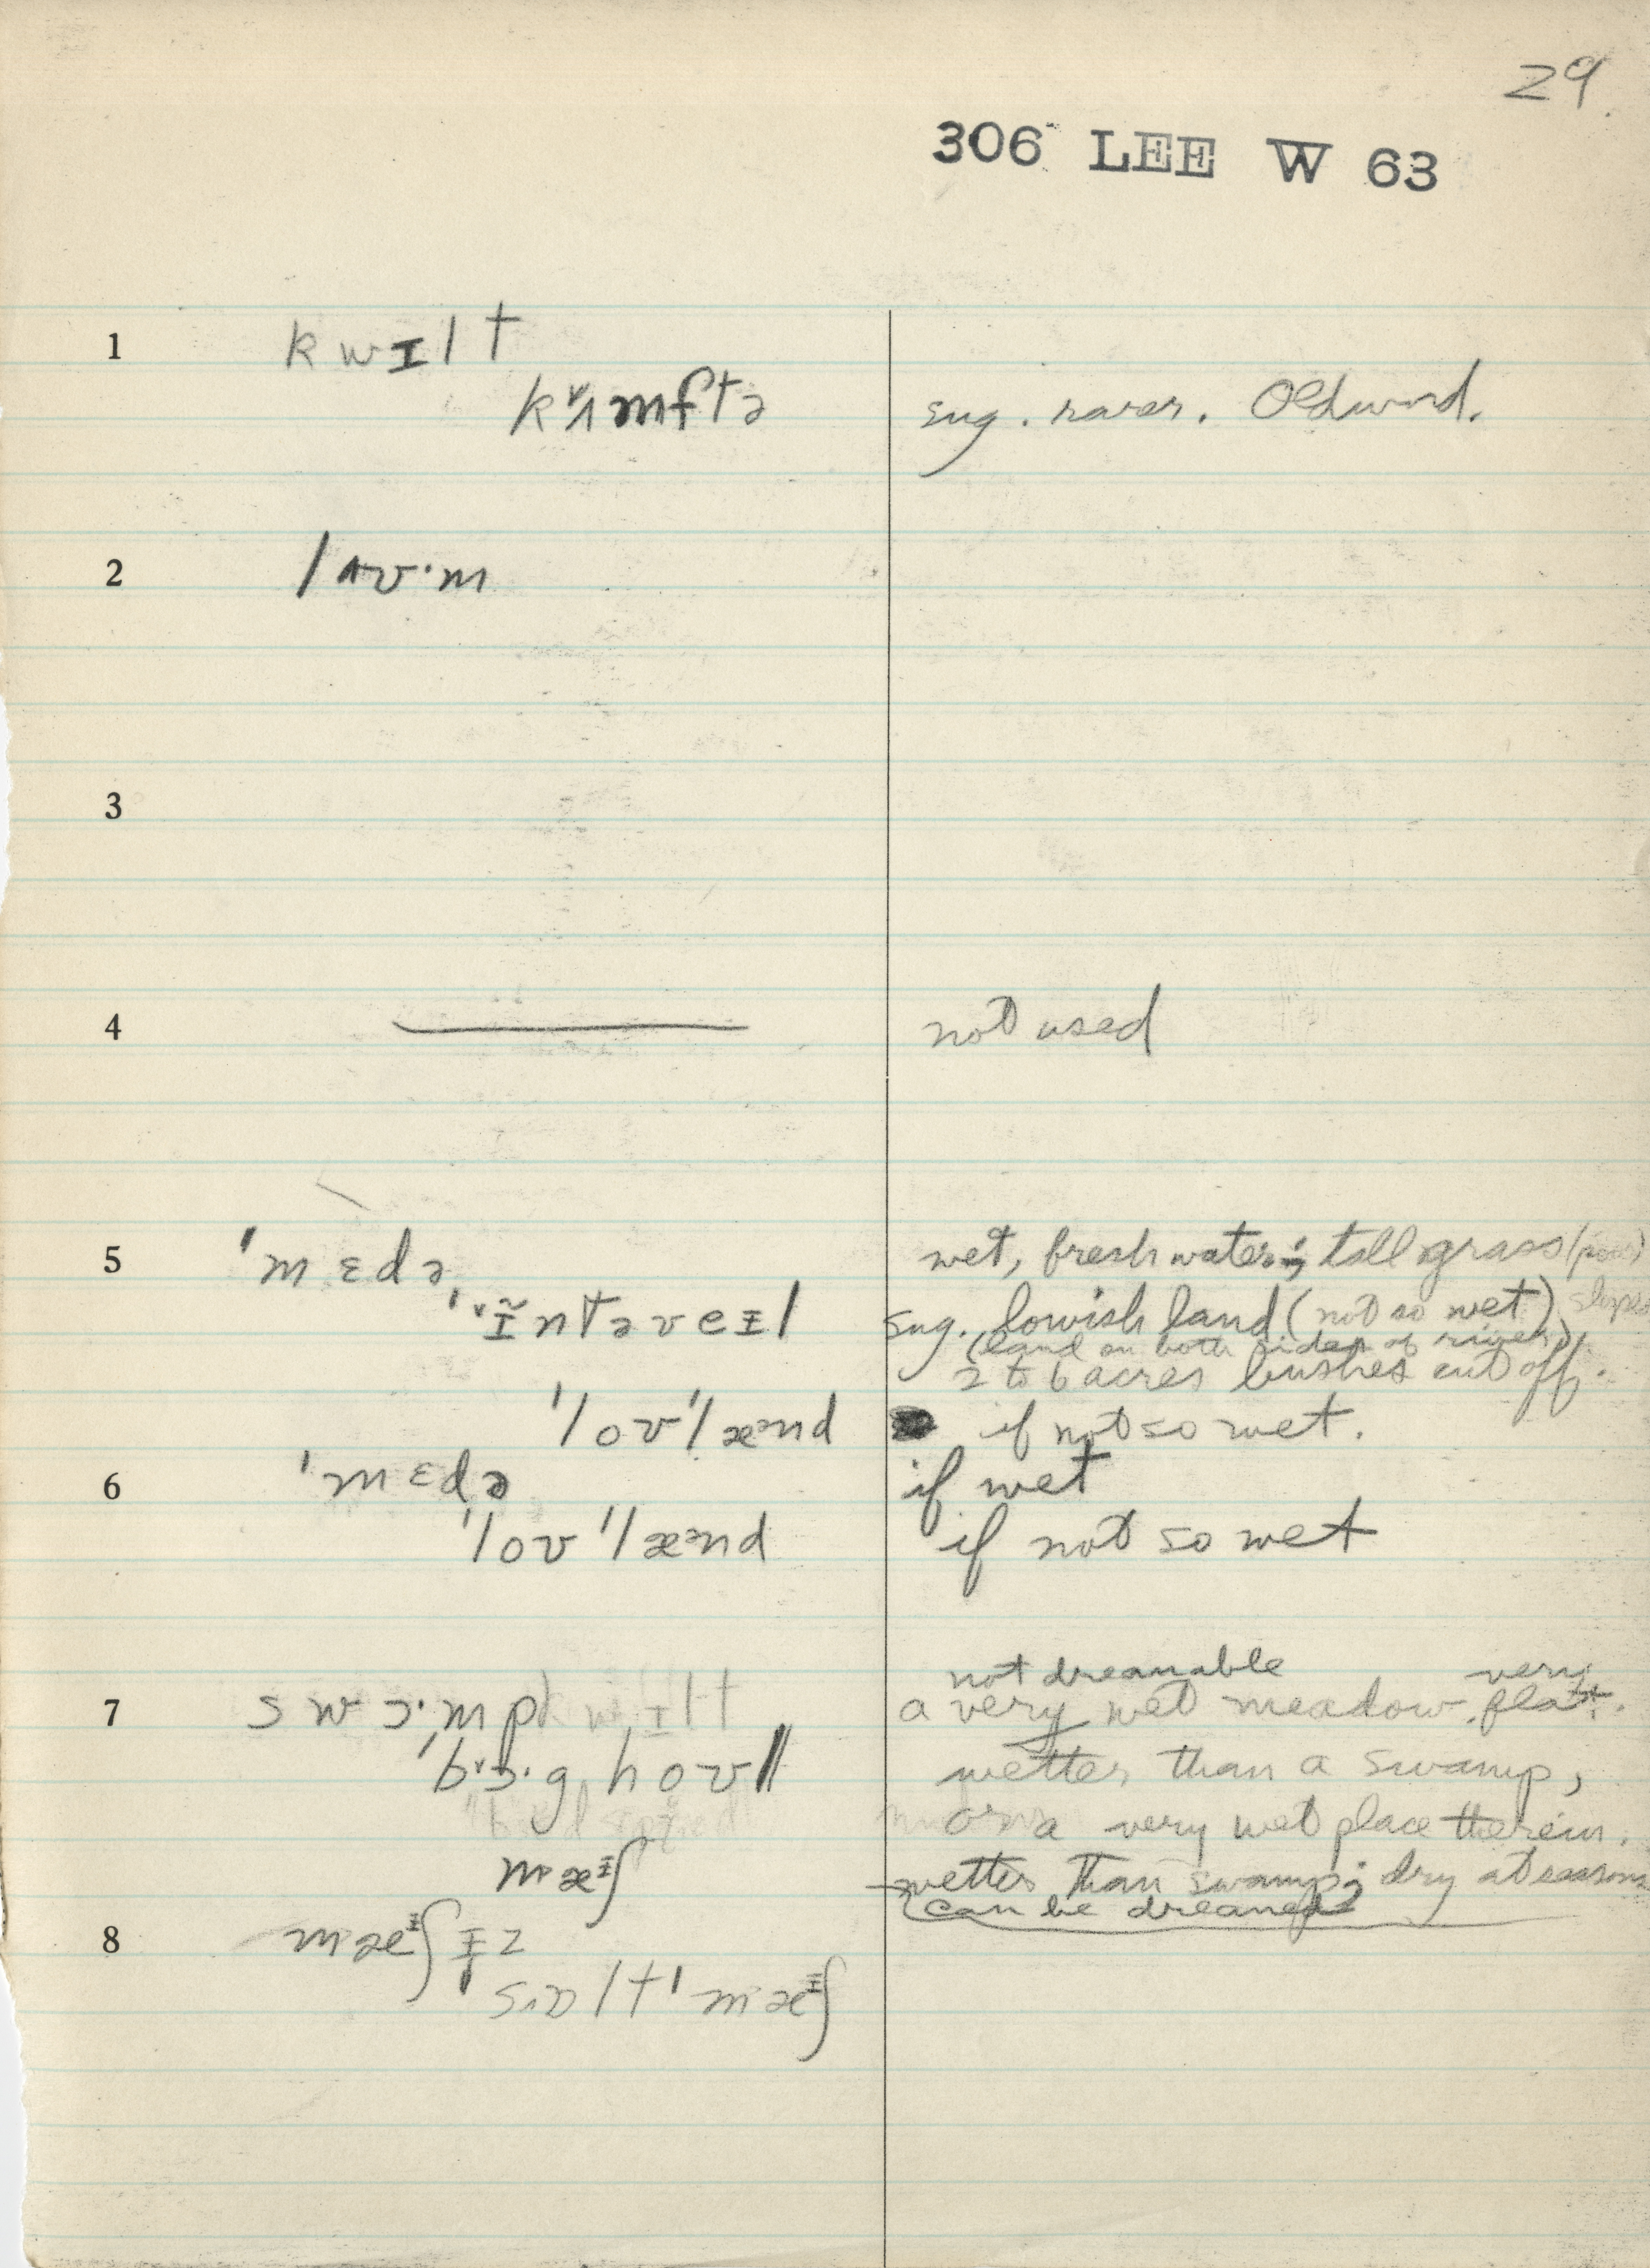 29
306 LEE W 63
1 kwɪlt
kʌmftə sug. rarer. Old word.
2 lʌʊ·m
3
4 not used
5 ˈmɛdə wet, fresh water; tall grass
ˈɪntəveɪl sug. lowish land (not so wet)
(land on both sides of river)
2 to 6 acres bushes cut off.
ˈloʊˈlæᵊnd if not so wet.
6 ˈmɛdə if wet
ˈloʊˈlæᵊnd if not so wet
not dreanable very
7 swɔ·mp a very wet meadow. flat.
hoʊl wetter than a swamp,
or a very wet place therein.
mæᶦʃ wetter than swamp; dry at seasons
can be dreaned
8 mæᶦʃɪz
sɒltˈmæᶦʃ